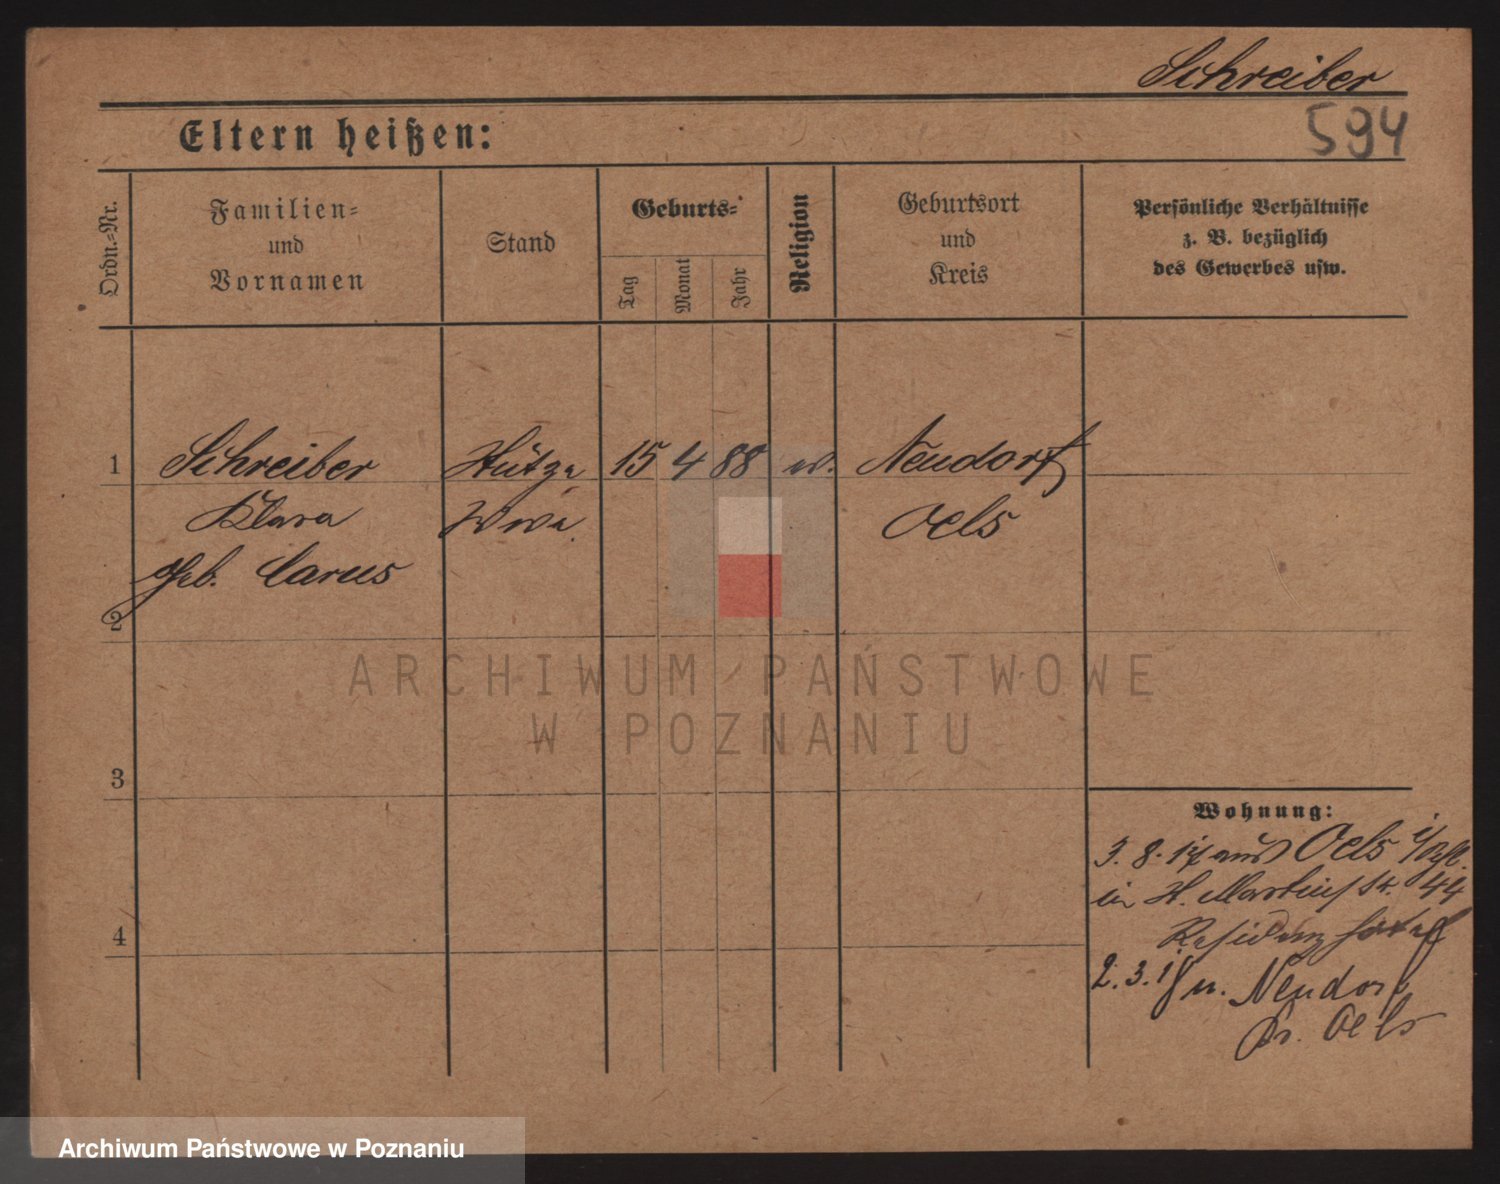 Schreiber
594
Eltern heißen:
Ordn.-Nr.
Familien-
und
Vornamen
Stand
Geburts-
Tag
Monat
Jahr
Religion
Geburtsort
und
Kreis
Persönliche Verhältnisse
z. B. bezüglich
des Gewerbes usw.
1 Schreiber Stütze 15 4 88 ev. Neudorf
Klara Wwe. Oels
geb. Carus
2
3
4
Wohnung:
3. 8. 17 aus Oels i/Schl.
in St. Martinstr. 44
Residenz hotel
2. 3. 18 n. Neudorf
Kr. Oels
ARCHIWUM PAŃSTWOWE
W POZNANIU
Archiwum Państwowe w Poznaniu